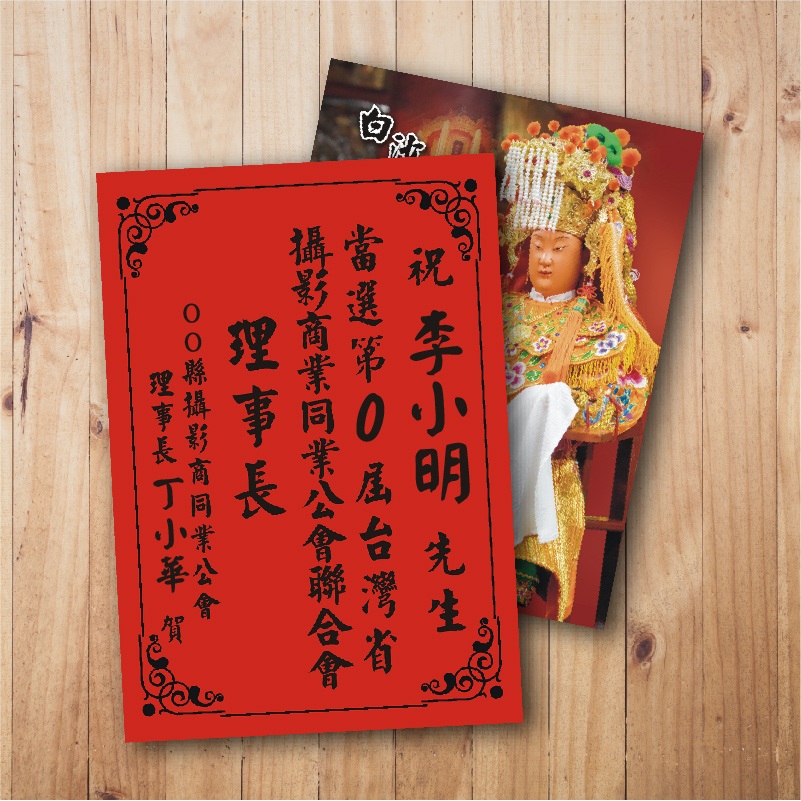 祝 李小明 先生
當選第0屆台灣省
攝影商業同業公會聯合會
理事長
OO縣攝影商同業公會
理事長 丁小華 賀
白沙